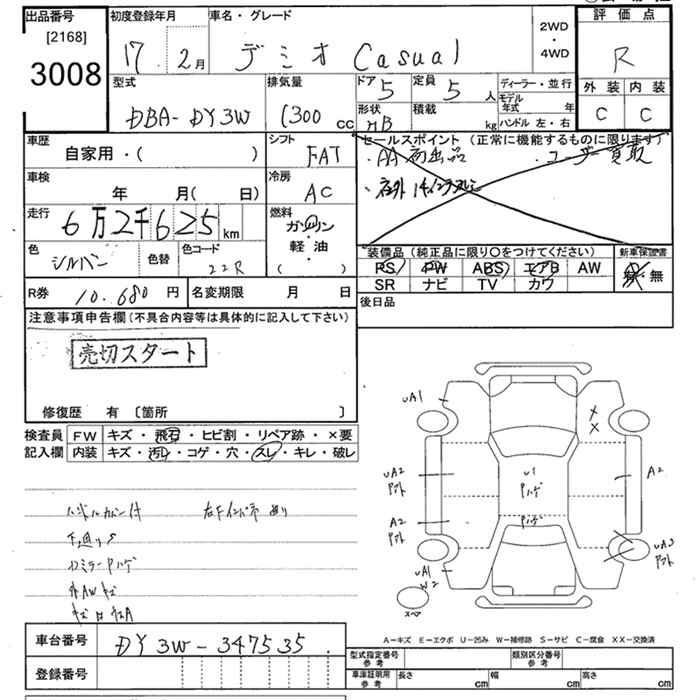 出品番号
[2168]
3008
初度登録年月
17年 2月
車名・グレード
デミオ Casual
2WD
・
4WD
評価点
R
外装 内装
C C
型式
DBA-DY3W
排気量
1300 cc
ドア 5
定員 5 人
形状 HB
積載 kg
ディーラー・並行
モデル年式 年
ハンドル 左・右
車歴
自家用・( )
シフト
FAT
車検
年 月( 日)
冷房
AC
走行
6万2千625km
燃料
ガソリン
・
軽・油
( )
色
シルバー
色替
色コード
22R
R券 10.680円
名変期限 月 日
セールスポイント (正常に機能するものに限ります)
・AA初出品 ・ユーザー買取
・社外14インチアルミ
装備品 (純正品に限り〇をつけてください)
PS PW ABS エアB AW
SR ナビ TV カワ
新車保証書
有・無
後日品
注意事項申告欄(不具合内容等は具体的に記入して下さい)
売切スタート
修復歴 有 〔箇所 〕
検査員記入欄
FW キズ・飛石・ヒビ割・リペア跡・×要
内装 キズ・汚レ・コゲ・穴・スレ・キレ・破レ
ハンドルカバー付 右Fインパネ
下廻りS
UA1
X
X
UA2
A2
U1
Pハゲ
A2
Pハゲ
A2
UA1
W2
UA3
スペア
A-キズ E-エクボ U-凹み W-補修跡 S-サビ C-腐食 XX-交換済
車台番号 DY3W-347535.
登録番号
型式指定番号 参考
類別区分番号 参考
車庫証明用 参考
長さ cm 幅 cm 高さ cm